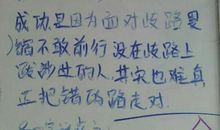 成功是因为面对歧路是
错不敢前行没在歧路上
跋涉过的人,其实也难真
正把错的路走对.